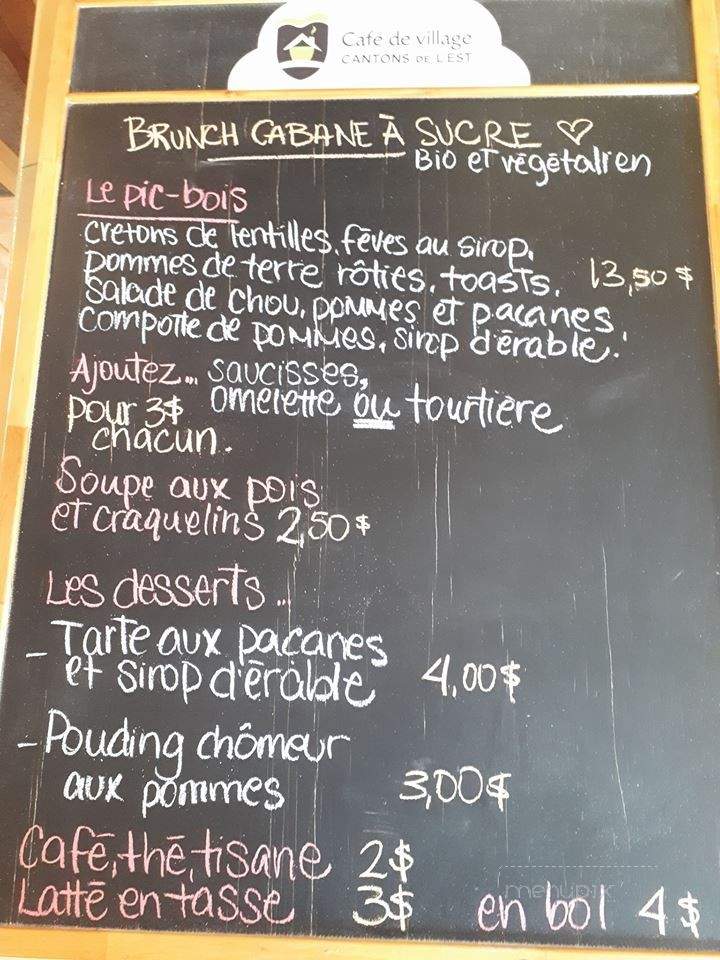 Café de village
CANTONS DE L'EST
BRUNCH CABANE À SUCRE ♡
Bio et végétalien
Le pic-bois
cretons de lentilles, fèves au sirop,
pommes de terre rôties, toasts, 13,50 $
salade de chou, pommes et pacanes,
compotte de pommes, sirop d'érable.
Ajoutez... saucisses,
pour 3$ omelette ou tourtière
chacun.
Soupe aux pois
et craquelins 2,50 $
Les desserts...
- Tarte aux pacanes
et sirop d'érable 4,00 $
- Pouding chômeur
aux pommes 3,00 $
Café, thé, tisane 2$
Latté en tasse 3$ en bol 4 $
menupix